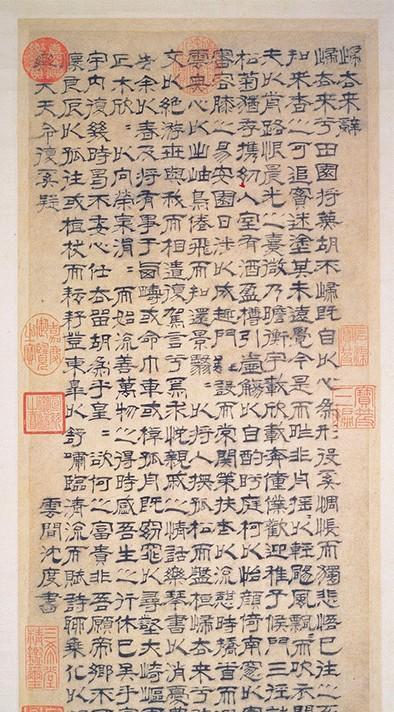 歸去來辭
歸去來兮田園將蕪胡不歸既自以心為形役奚惆悵而獨悲悟已往之不
知來者之可追寔迷塗其未遠覺今是而昨非舟搖〻以輕颺風飄〻而吹衣
夫以前路恨晨光之熹微乃瞻衡宇載欣載奔僮僕歡迎稚子候門三徑就
松菊猶存攜幼入室有酒盈樽引壺觴以自酌眄庭柯以怡顏倚南窗以寄
審容膝之易安園日涉以成趣門雖設而常關策扶老以流憩時矯首而
雲無心以出岫鳥倦飛而知還景翳〻以將入撫孤松而盤桓歸去來兮
交以絕游世與我而相遺復駕言兮焉求悅親戚之情話樂琴書以消憂
告余以春及將有事于西疇或命巾車或棹孤舟既窈窕以尋壑亦崎嶇而
丘木欣〻以向榮泉涓〻而始流善萬物之得時感吾生之行休已矣乎
宇內復幾時曷不委心任去留胡為乎皇〻欲何之富貴非吾願帝鄉不
懷良辰以孤往或植杖而耘耔登東皋以舒嘯臨清流而賦詩聊乘化以
樂夫天命復奚疑
雲間沈度書